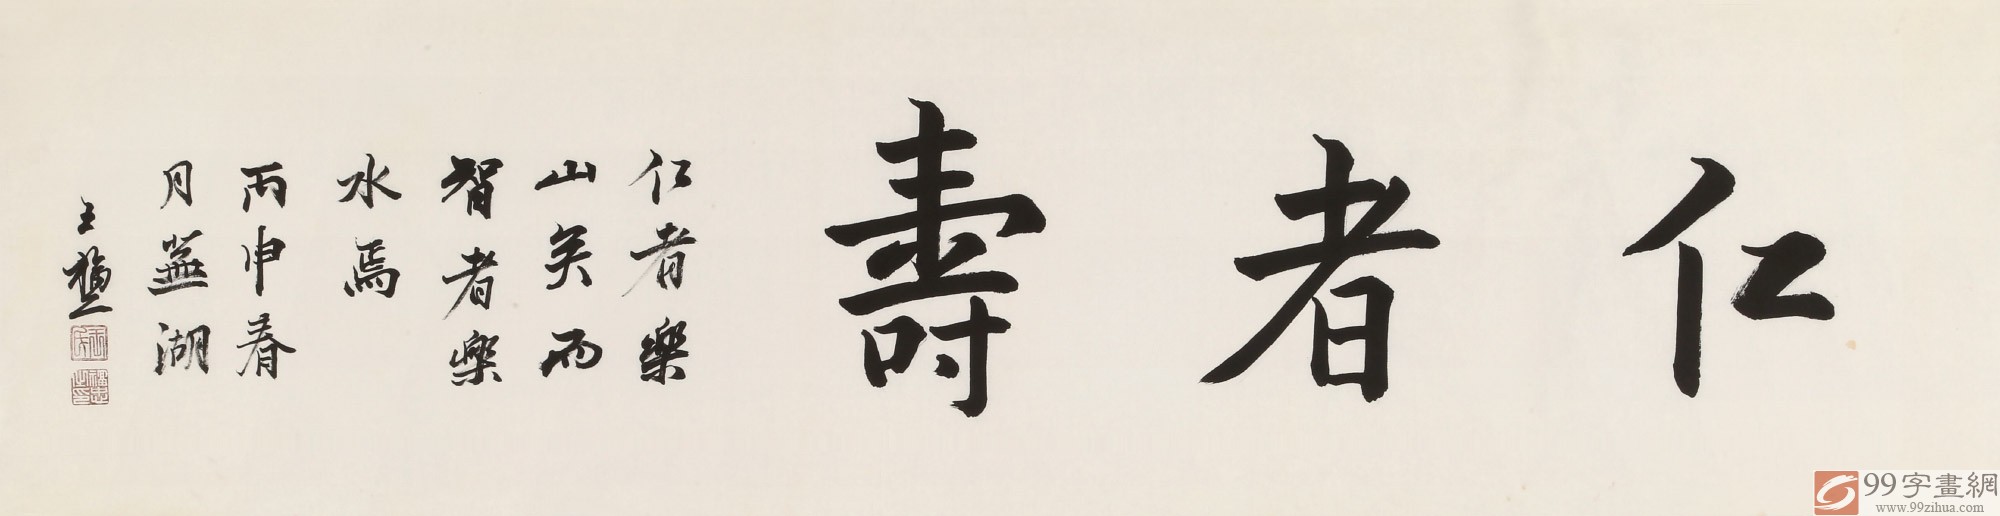 仁者壽
仁者樂
山矣而
智者樂
水焉
丙申春
月蕪湖
王
99字畫網
www.99zihua.com